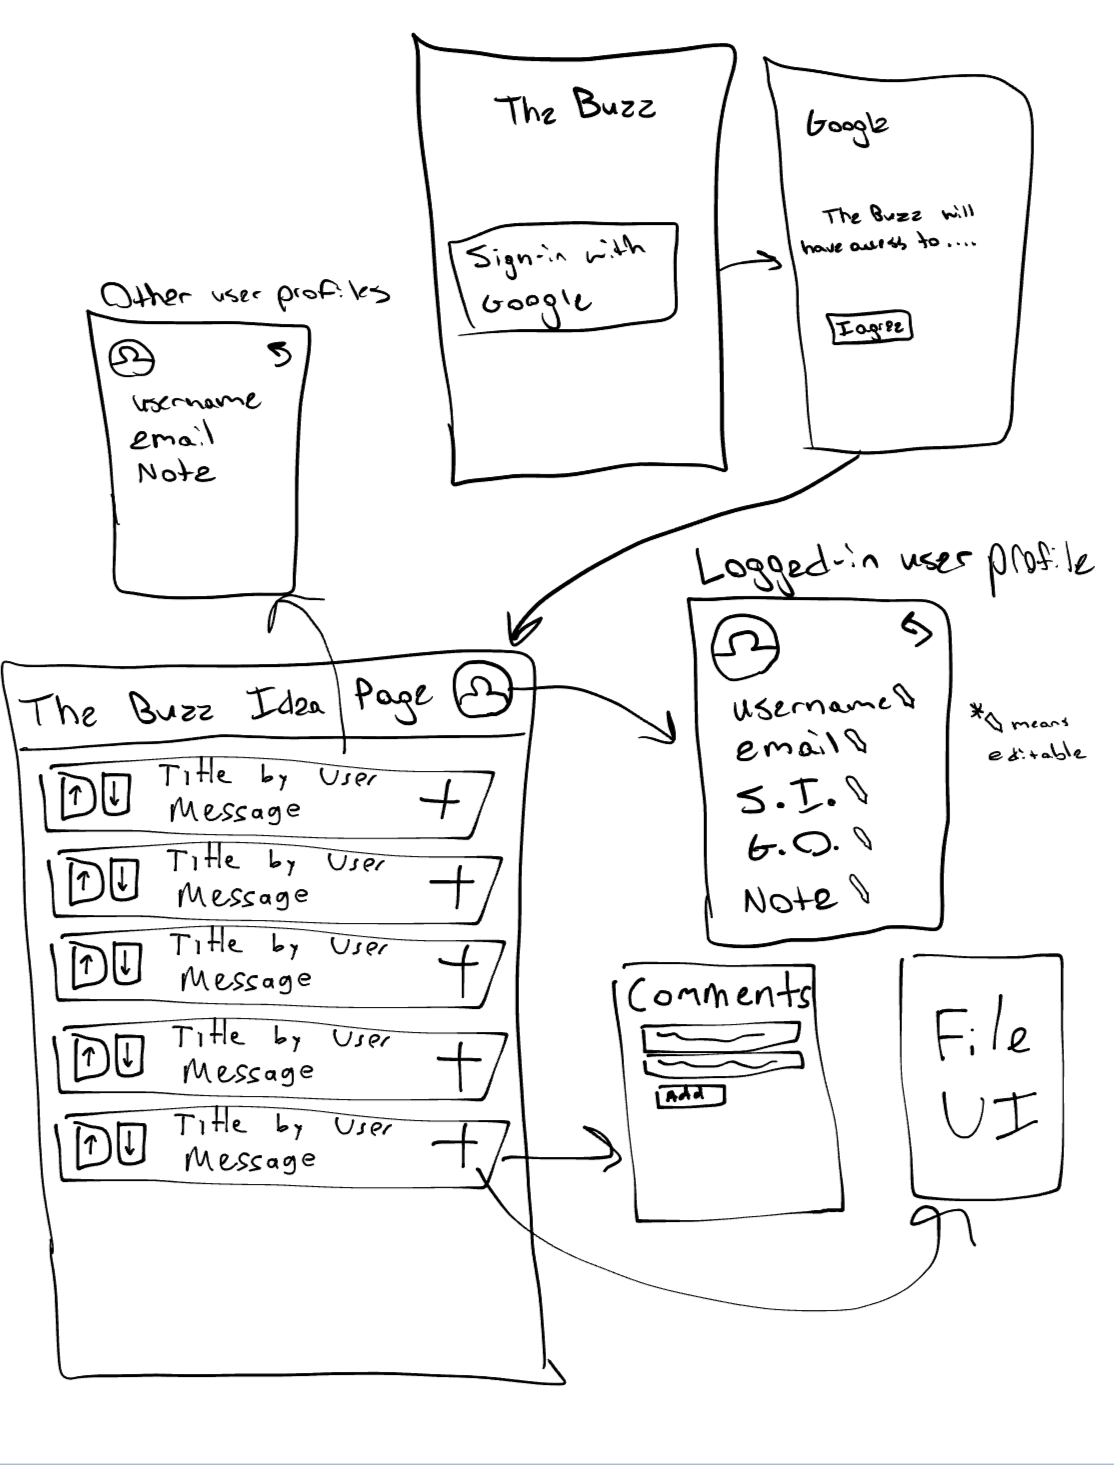 The Buzz
Sign-in with
Google
Google
The Buzz will
have access to ....
I agree
Other user profiles
username
email
Note
Logged-in user profile
username
email
S.I.
G.O.
Note
* means
editable
The Buzz Idea Page
↑ ↓ Title by User
Message +
↑ ↓ Title by User
Message +
↑ ↓ Title by User
Message +
↑ ↓ Title by User
Message +
↑ ↓ Title by User
Message +
Comments
Add
File
UI